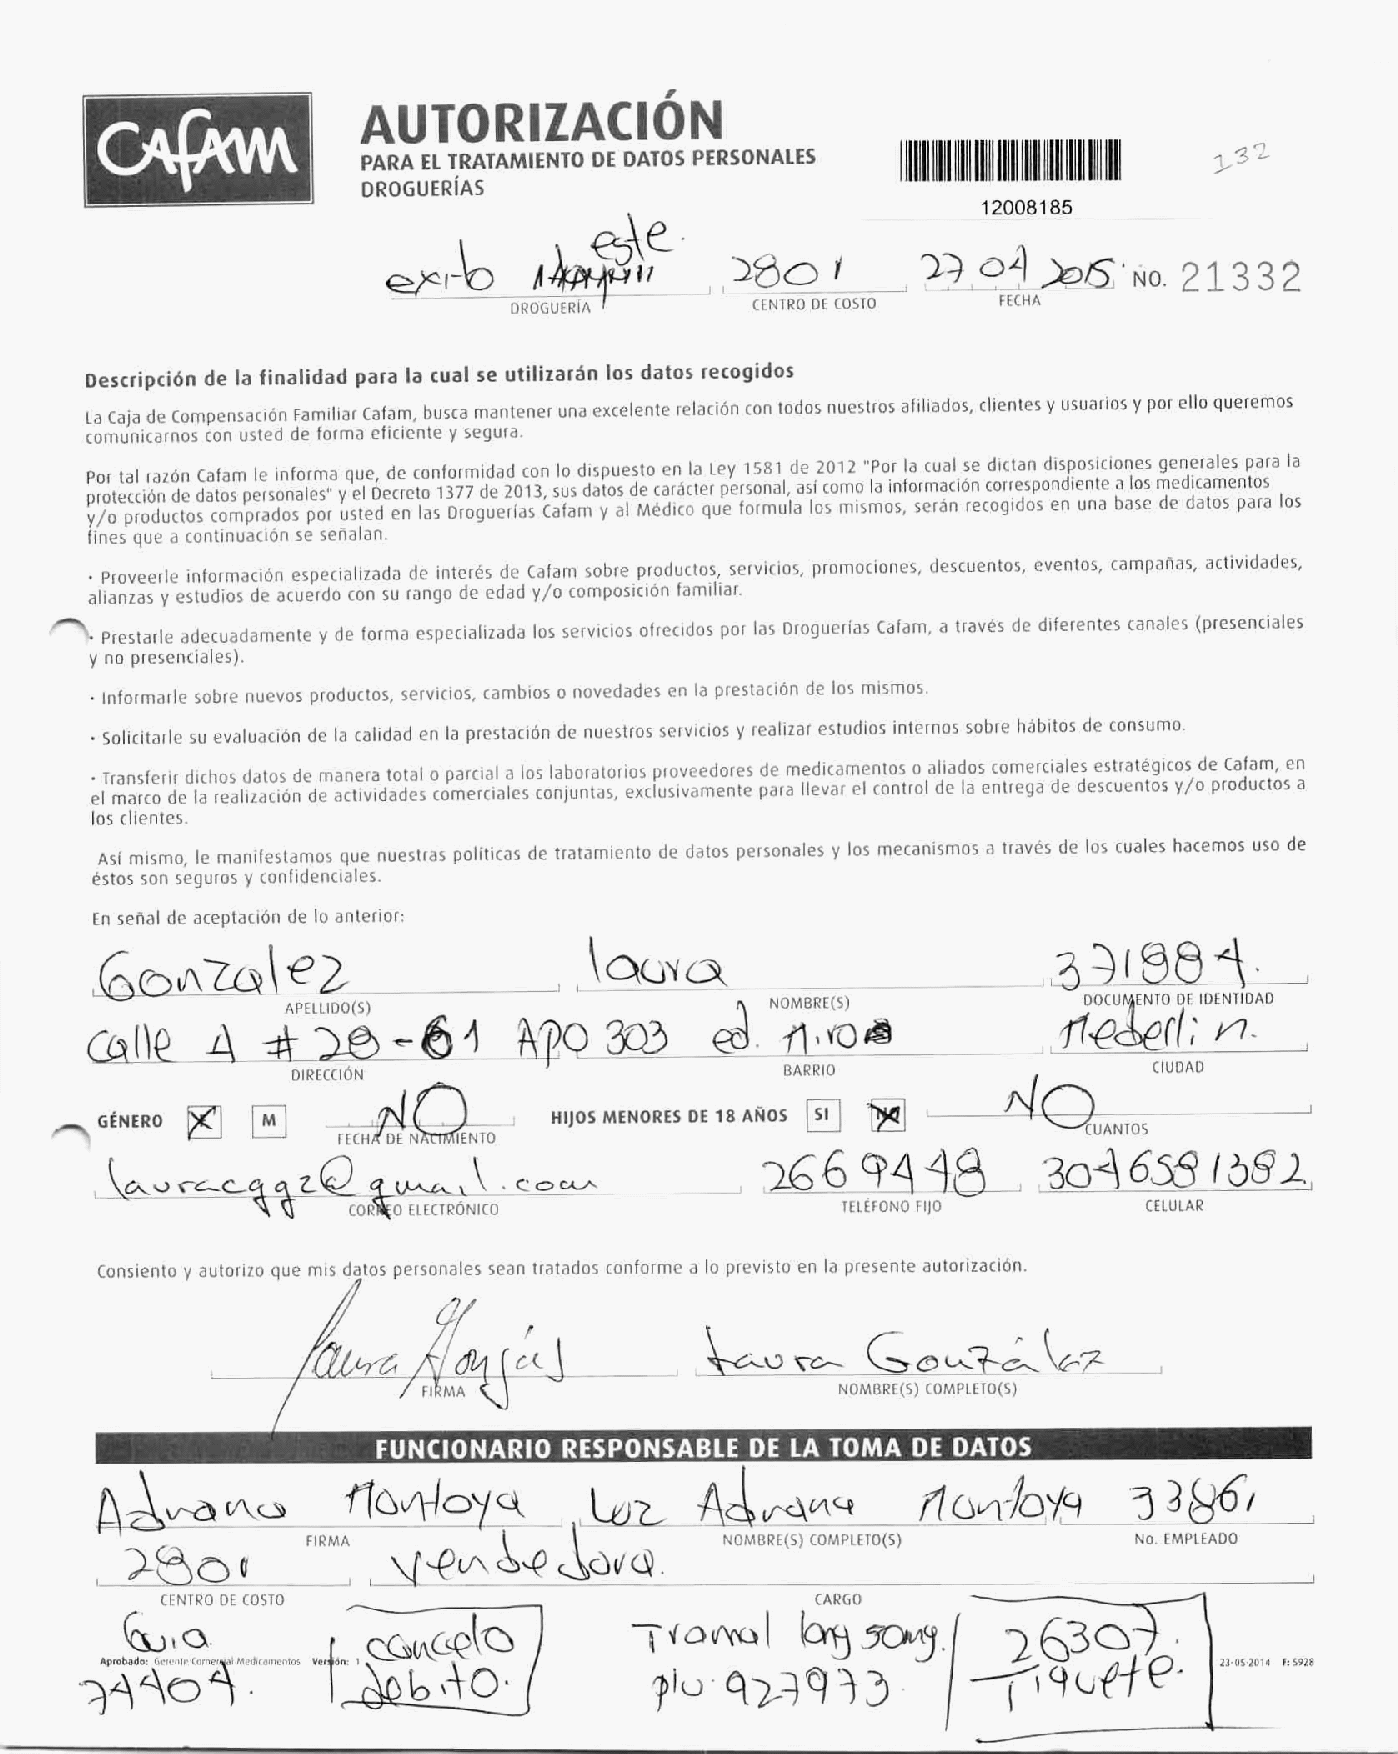 CAFAM
AUTORIZACIÓN
PARA EL TRATAMIENTO DE DATOS PERSONALES
DROGUERÍAS
132
12008185
este.
exito 2801 27 04 2015 NO. 21332
DROGUERÍA CENTRO DE COSTO FECHA
Descripción de la finalidad para la cual se utilizarán los datos recogidos
La Caja de Compensación Familiar Cafam, busca mantener una excelente relación con todos nuestros afiliados, clientes y usuarios y por ello queremos
comunicarnos con usted de forma eficiente y segura.
Por tal razón Cafam le informa que, de conformidad con lo dispuesto en la Ley 1581 de 2012 "Por la cual se dictan disposiciones generales para la
protección de datos personales" y el Decreto 1377 de 2013, sus datos de carácter personal, así como la información correspondiente a los medicamentos
y/o productos comprados por usted en las Droguerías Cafam y al Médico que formula los mismos, serán recogidos en una base de datos para los
fines que a continuación se señalan.
· Proveerle información especializada de interés de Cafam sobre productos, servicios, promociones, descuentos, eventos, campañas, actividades,
alianzas y estudios de acuerdo con su rango de edad y/o composición familiar.
· Prestarle adecuadamente y de forma especializada los servicios ofrecidos por las Droguerías Cafam, a través de diferentes canales (presenciales
y no presenciales).
· Informarle sobre nuevos productos, servicios, cambios o novedades en la prestación de los mismos.
· Solicitarle su evaluación de la calidad en la prestación de nuestros servicios y realizar estudios internos sobre hábitos de consumo.
· Transferir dichos datos de manera total o parcial a los laboratorios proveedores de medicamentos o aliados comerciales estratégicos de Cafam, en
el marco de la realización de actividades comerciales conjuntas, exclusivamente para llevar el control de la entrega de descuentos y/o productos a
los clientes.
Así mismo, le manifestamos que nuestras políticas de tratamiento de datos personales y los mecanismos a través de los cuales hacemos uso de
éstos son seguros y confidenciales.
En señal de aceptación de lo anterior:
Gonzalez laura 371884.
APELLIDO(S) NOMBRE(S) DOCUMENTO DE IDENTIDAD
Calle 4 # 28-61 APO 303 ed. Miro Medellin.
DIRECCIÓN BARRIO CIUDAD
GÉNERO X M NO HIJOS MENORES DE 18 AÑOS SI NO
FECHA DE NACIMIENTO CUANTOS
lauracggz@gmail.com 2669448 3046581382
CORREO ELECTRÓNICO TELÉFONO FIJO CELULAR
Consiento y autorizo que mis datos personales sean tratados conforme a lo previsto en la presente autorización.
Laura González
FIRMA NOMBRE(S) COMPLETO(S)
FUNCIONARIO RESPONSABLE DE LA TOMA DE DATOS
Adriana Montoya Luz Adriana Montoya 33861
FIRMA NOMBRE(S) COMPLETO(S) No. EMPLEADO
2801 vendedora.
CENTRO DE COSTO CARGO
Guia cancelo Tramal long 50mg. 26307.
Aprobado: Gerente Comercial Medicamentos Versión: 1 23-05-2014 F: 5928
74404. debito. plu: 927973. Tiquete.